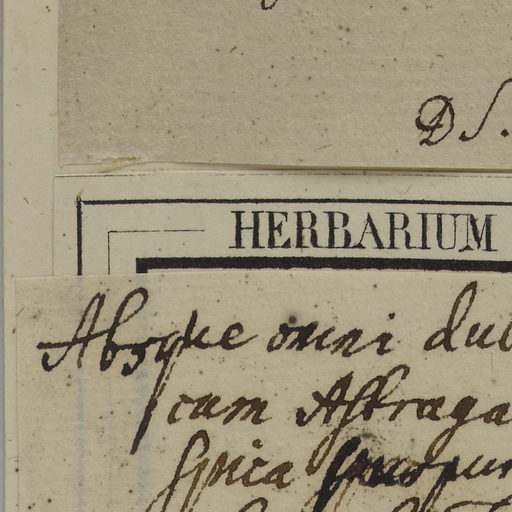 DS.
HERBARIUM
Absque omni dub
cum Astraga
spica